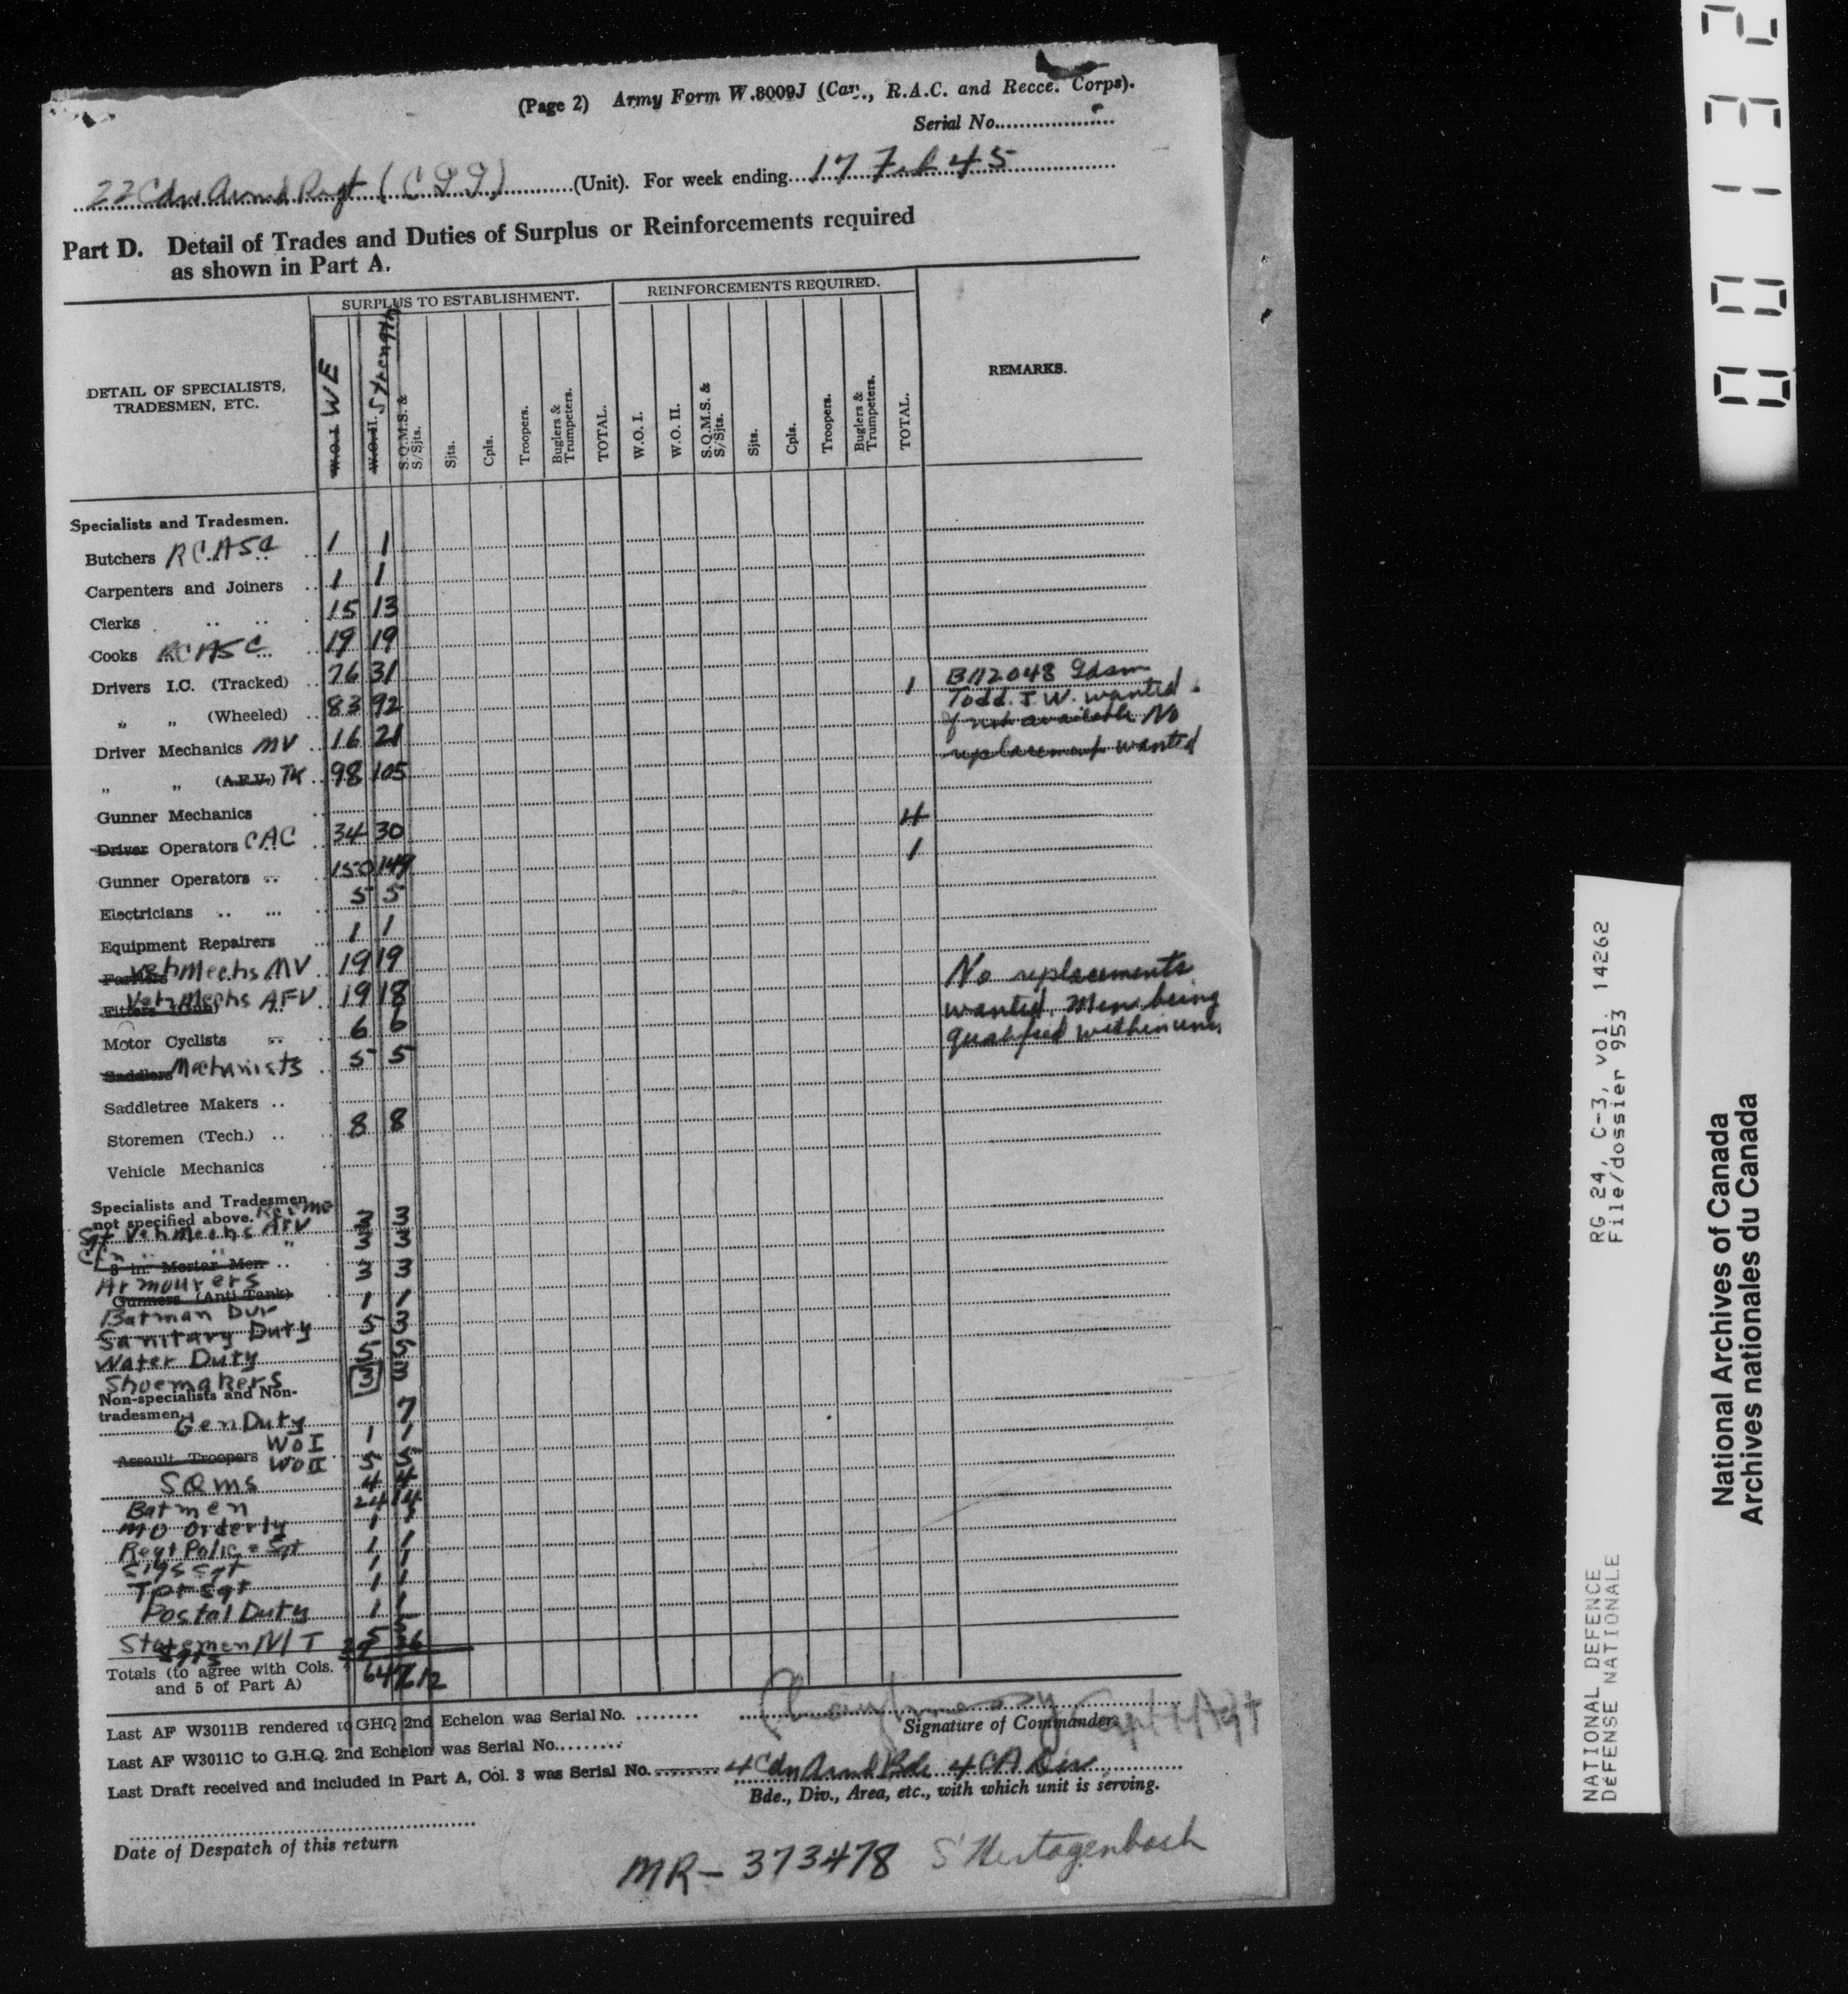 (Page 2) Army Form W.8009J (Cav., R.A.C. and Recce. Corps).
Serial No...................
22 Cdn Armd Regt (CGG) (Unit). For week ending 17 Feb 45
Part D. Detail of Trades and Duties of Surplus or Reinforcements required
as shown in Part A.
DETAIL OF SPECIALISTS, TRADESMEN, ETC.
SURPLUS TO ESTABLISHMENT.
REINFORCEMENTS REQUIRED.
REMARKS.
W.O.I. WE
W.O.II. Strength
S.Q.M.S. & S/Sjts.
Sjts.
Cpls.
Troopers.
Buglers & Trumpeters.
TOTAL.
W.O. I.
W.O. II.
S.Q.M.S. & S/Sjts.
Sjts.
Cpls.
Troopers.
Buglers & Trumpeters.
TOTAL.
Specialists and Tradesmen.
Butchers RCASC 1 1
Carpenters and Joiners 1 1
Clerks 15 13
Cooks RCASC 19 19
Drivers I.C. (Tracked) 76 31
„ „ (Wheeled) 83 92 1 B112048 Gdsm
Todd. J.W. wanted.
Driver Mechanics MV 16 21
If not available No
replacement wanted
„ „ (A.F.V.) TK 98 105
Gunner Mechanics
Driver Operators CAC 34 30 4
Gunner Operators 150 149 1
Electricians 5 5
Equipment Repairers 1 1
Farriers Veh Mechs MV 19 19
Fitters (Gun) Veh Mechs AFV 19 18
No replacements
wanted. Men being
qualified within unit
Motor Cyclists 6 6
Saddlers Machinists 5 5
Saddletree Makers
Storemen (Tech.) 8 8
Vehicle Mechanics
Specialists and Tradesmen
not specified above.
Sgt Veh Mechs AFV 3 3
3 3
3 in. Mortar Men
Armourers 3 3
Gunners (Anti Tank)
Batman Dvr 1 1
Sanitary Duty 5 3
Water Duty 5 5
Shoemakers 3 3
Non-specialists and Non-
tradesmen.
Gen Duty 7
WO I 1 1
Assault Troopers WO II 5 5
SQMS 4 4
Batmen 24 14
MO Orderly 1 1
Regt Police Sgt 1 1
Sigs Sgt 1 1
Tpt Sgt 1 1
Postal Duty 1 1
Storemen N/T 5
Sgts
Totals (to agree with Cols.
and 5 of Part A) 647 612
Last AF W3011B rendered to GHQ 2nd Echelon was Serial No. ........
Capt/Adjt
Signature of Commander.
Last AF W3011C to G.H.Q. 2nd Echelon was Serial No.........
Last Draft received and included in Part A, Col. 3 was Serial No. ........
4 Cdn Armd Bde 4 CA Div
Bde., Div., Area, etc., with which unit is serving.
Date of Despatch of this return
MR - 373478 S'Hertogenbosh
00132
RG 24, C-3, vol. 14262
File/dossier 953
NATIONAL DEFENCE
DÉFENSE NATIONALE
National Archives of Canada
Archives nationales du Canada